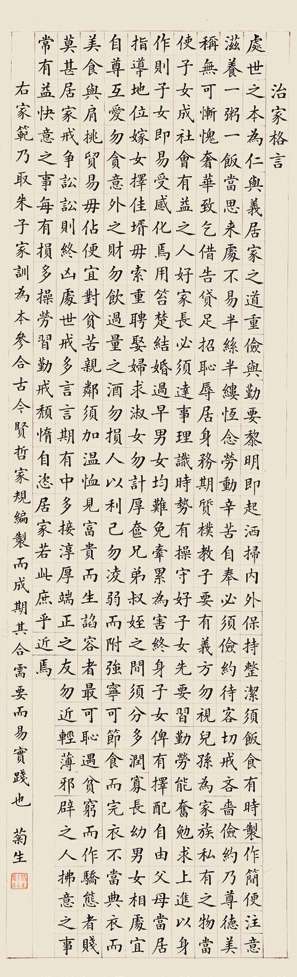 治家格言
處世之本為仁與義居家之道重儉與勤要黎明即起洒掃內外保持整潔須飯食有時製作簡便注意
滋養一粥一飯當思來處不易半絲半縷恆念勞動辛苦自奉必須儉約待客切戒吝嗇儉約乃尊德美
稱無可慚愧奢華致乞借告貸足招恥辱居身務期質樸教子要有義方勿視兒孫為家族私有之物當
使子女成社會有益之人好家長必須達事理識時勢有操守好子女先要習勤勞能奮勉求上進以身
作則子女即易受感化焉用笞楚結婚過早男女均難免牽累為害終身子女俾有擇配自由父母當居
指導地位嫁女擇佳壻毋索重聘娶婦求淑女勿計厚奩兄弟叔姪之間須分多潤寡長幼男女相處宜
自尊互愛勿貪意外之財勿飲過量之酒勿損人以利己勿凌弱而附強寧可節食而完衣不當典衣而
美食與肩挑貿易毋佔便宜對貧苦親鄰須加溫恤見富貴而生諂容者最可恥遇貧窮而作驕態者賤
莫甚居家戒爭訟訟則終凶處世戒多言言期有中多接淳厚端正之友勿近輕薄邪辟之人拂意之事
常有益快意之事每有損多操勞習勤戒頹惰自恣居家若此庶乎近焉
右家範乃取朱子家訓為本參合古今賢哲家規編製而成期其合需要而易實踐也 菊生